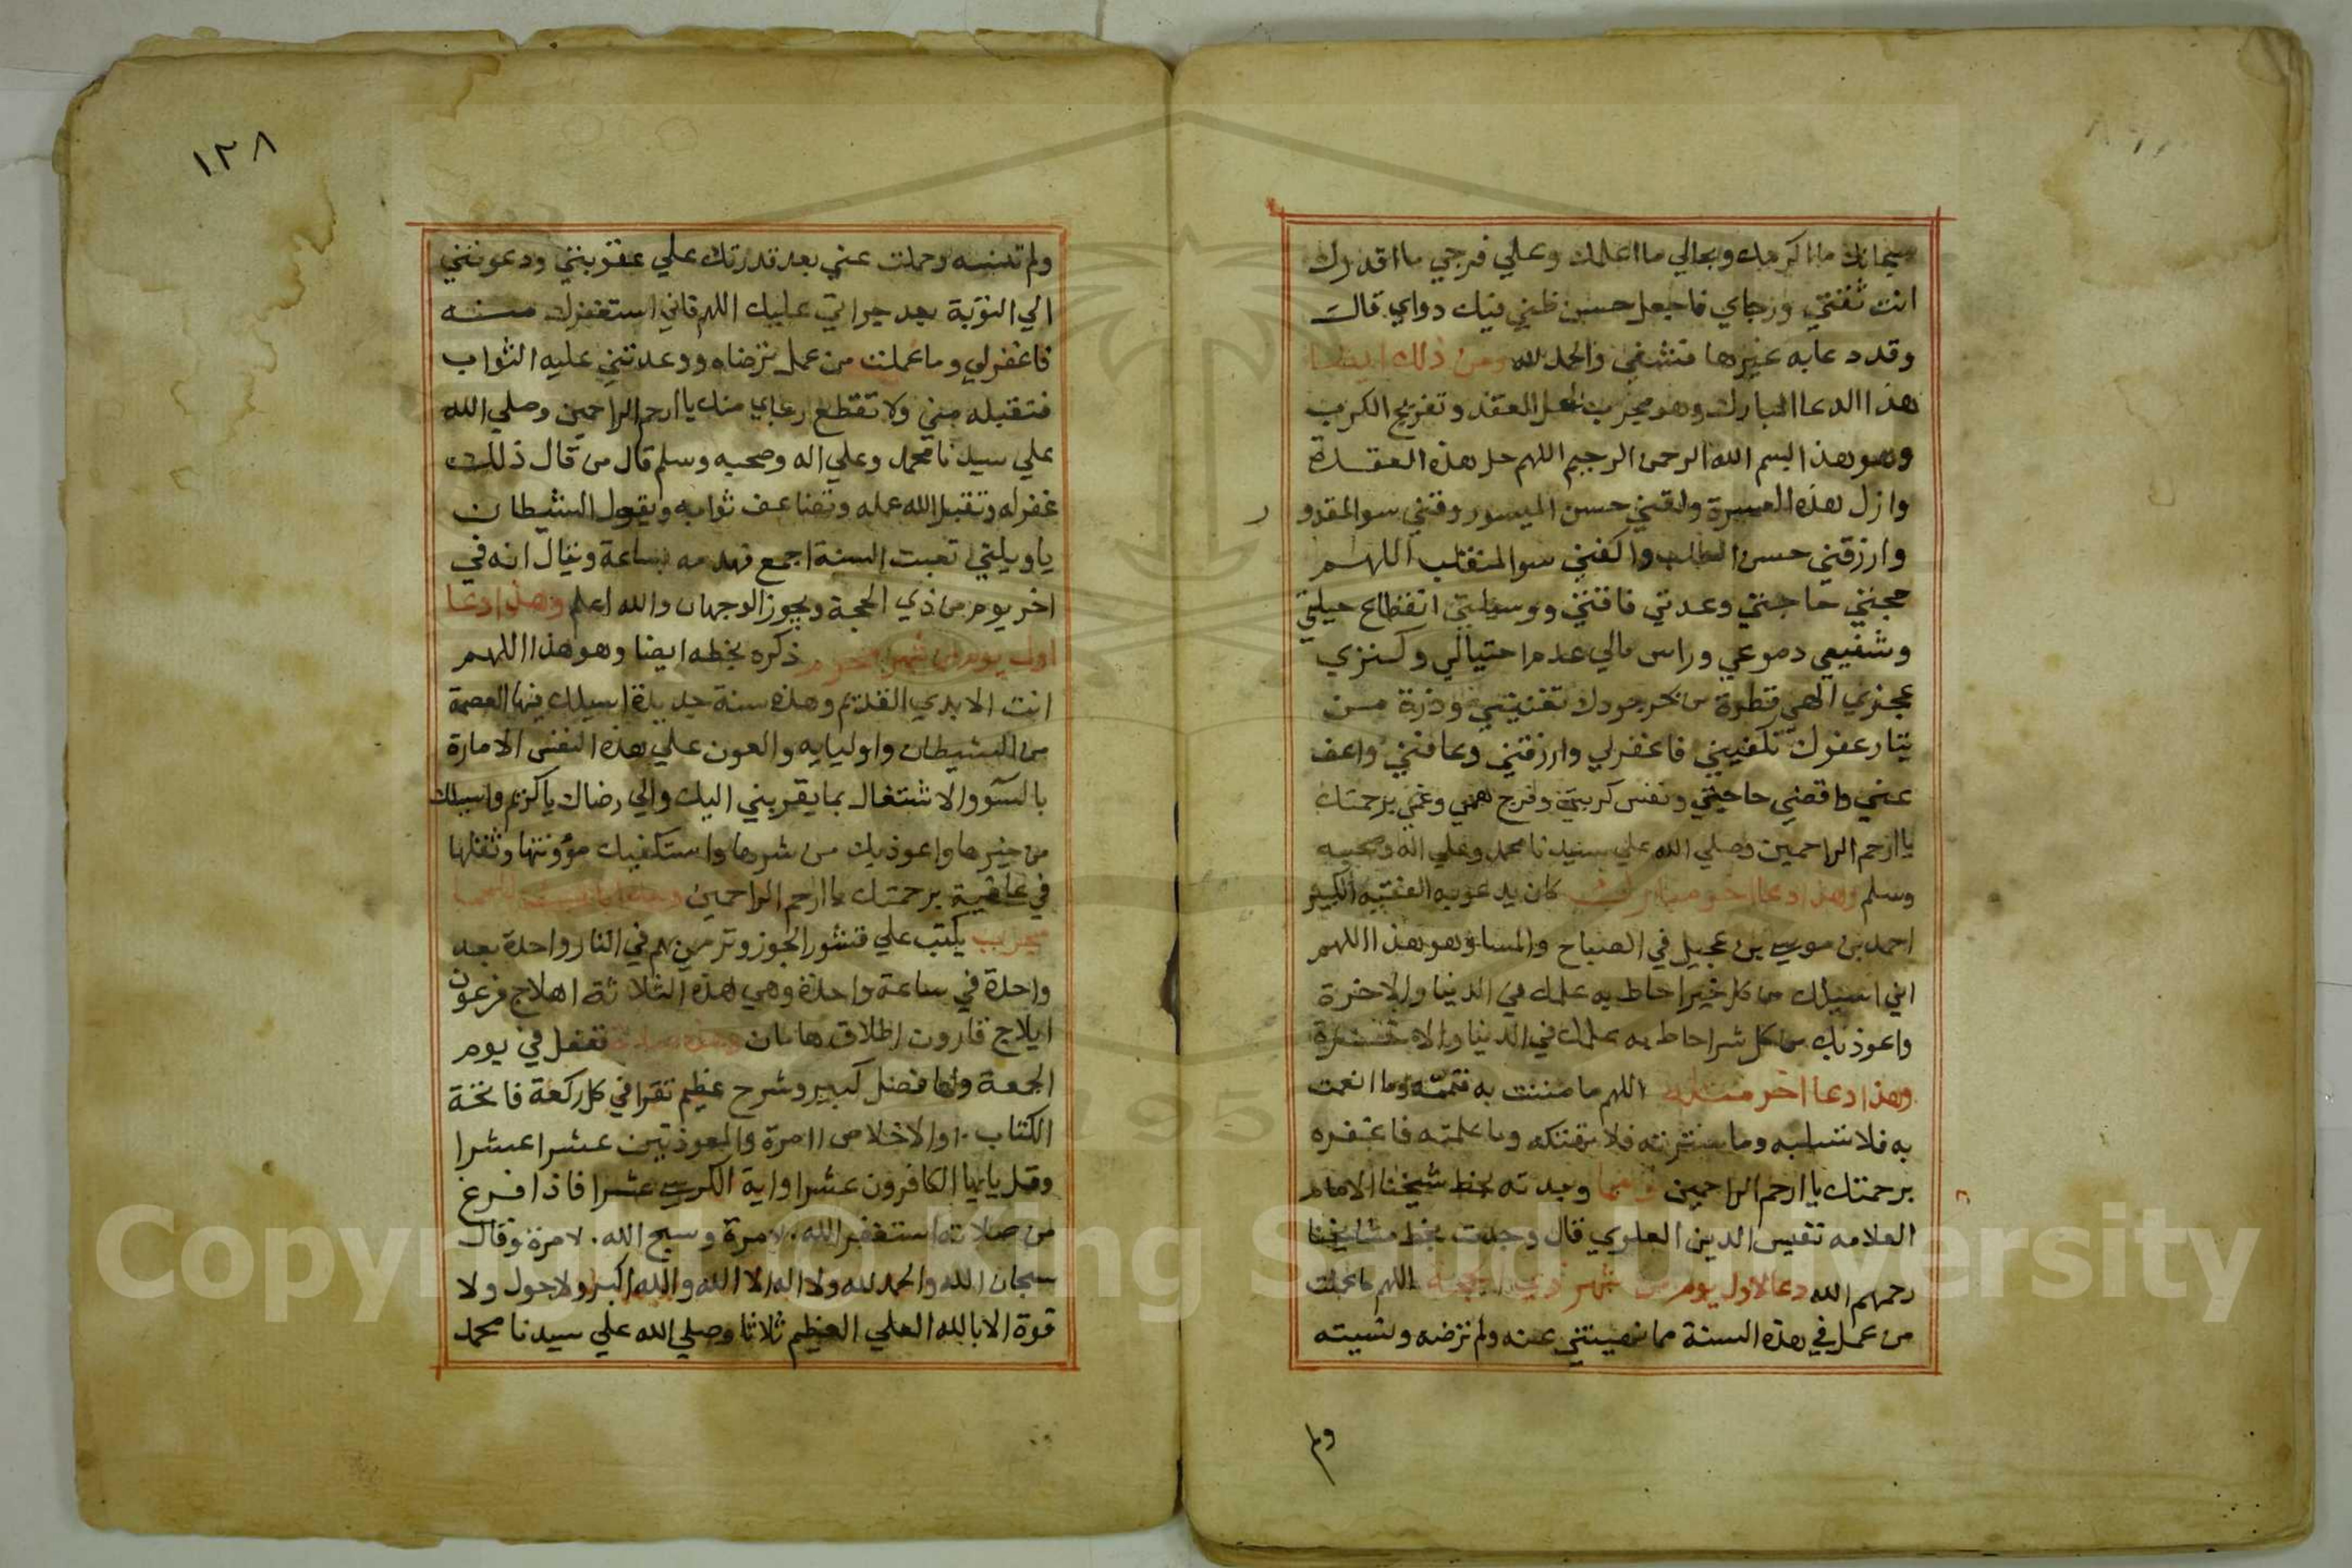 سبحانك ما اكرمك وبحالي ما اعلمك وعلي فرجي ما اقدرك
انت ثقتي ورجاي فاجعل حسن ظني فيك دواي قالت
وقد دعا به غيرها فشفي والحمد لله ومن ذلك ايضا
هذا الدعا المبارك وهو مجرب لحل العقد وتفريج الكرب
وهو هذا بسم الله الرحمن الرحيم اللهم حل هذه العقدة
وازل هذه العسرة ولقني حسن الميسور وقني سو المقدو
ر
وارزقني حسن الطلب واكفني سو المنقلب اللهم
حجتي حاجتي وعدتي فاقتي ووسيلتي انقطاع حيلتي
وشفيعي دموعي وراس مالي عدم احتيالي وكنزي
عجزي الهي قطرة من بحر جودك تغنيني وذرة من
تيار عفوك تكفيني فاغفر لي وارزقني وعافني واعف
عني واقضي حاجتي ونفس كربتي وفرج همي وغمي برحمتك
يا ارحم الراحمين وصلي الله علي سيدنا محمد وعلي اله وصحبه
وسلم وهذا دعا اخر مبارك كان يدعو به الفقيه الكبير
احمد بن موسي بن عجيل في الصباح والمسا وهو هذا اللهم
اني اسيلك من كل خير احاط به علمك في الدنيا والاخرة
واعوذ بك من كل شر احاط به علمك في الدنيا والاخرة
وهذا دعا اخر مثله اللهم ما مننت به فتممه وما انعمت
به فلا تسلبه وما سترته فلا تهتكه وما علمته فاغفره
برحمتك يا ارحم الراحمين ومما وجدته بخط شيخنا الامام
العلامه نفيس الدين العلوي قال وجدت بخط مشايخنا
رحمهم الله دعا لاول يوم من شهر ذي الحجة اللهم ما عملت
من عمل في هذه السنة مما نهيتني عنه ولم ترضه ونسيته
ولم
١٢٨
ولم تنسه وحملت عني بعد قدرتك علي عقوبتي ودعوتني
الي التوبة بعد جراتي عليك اللهم فاني استغفرك منه
فاغفر لي وما عملت من عمل ترضاه ووعدتني عليه الثواب
فتقبله مني ولا تقطع رجاي منك يا ارحم الراحمين وصلي الله
علي سيدنا محمد وعلي اله وصحبه وسلم قال من قال ذلك
غفر له وتقبل الله عمله وتضاعف ثوابه ويقول الشيطان
يا ويلتي تعبت السنة اجمع فهدمه بساعة ويقال انه في
اخر يوم من ذي الحجة ويجوز الوجهان والله اعلم وهذا دعا
اول يوم من شهر المحرم ذكره بخطه ايضا وهو هذا اللهم
انت الابدي القديم وهذه سنة جديدة اسيلك فيها العصمة
من الشيطان واوليايه والعون علي هذه النفس الامارة
بالسوو والاشتغال بما يقربني اليك والي رضاك يا كريم واسيلك
من خيرها واعوذ بك من شرها واستكفيك مؤونتها وثقلها
في عافية برحمتك يا ارحم الراحمين للحما
مجرب يكتب علي قشور الجوز وترمي بهم في النار واحدة بعد
واحدة في ساعة واحدة وهي هذه الثلاثة اهلاج فرعون
ايلاج قارون اطلاق هامان وهذه صلاة تفعل في يوم
الجمعة ولها فضل كبير وشرح عظيم تقرا في كل ركعة فاتحة
الكتاب ١٠ والاخلاص ١١ مرة والمعوذتين عشرا عشرا
وقل يايها الكافرون عشرا واية الكرسي عشرا فاذا فرغ
من صلاته استغفر الله ٧٠ مرة وسبح الله ٧٠ مرة وقال
سبحان الله والحمد لله ولا اله الا الله والله اكبر ولا حول ولا
قوة الا بالله العلي العظيم ثلاثا وصلي الله علي سيدنا محمد
Copyright © King Saud University
195